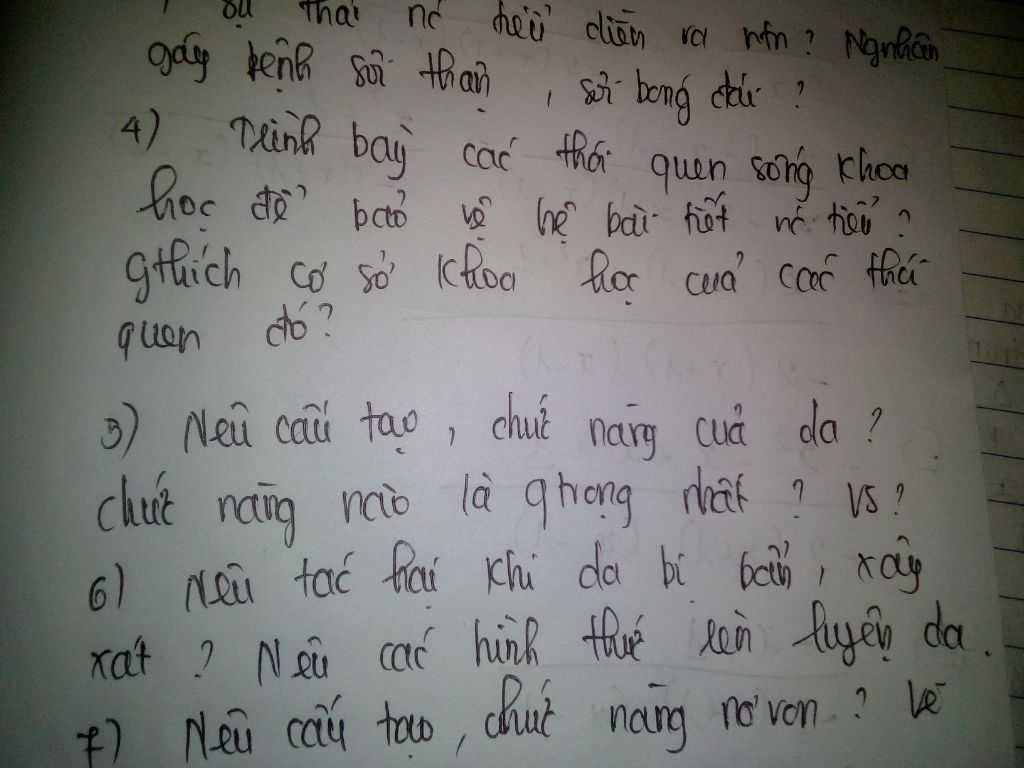 , sự thải nc tiểu diễn ra ntn ? Ngnhân
gây bệnh sỏi thận , sỏi bóng đái ?
4) Trình bày các thói quen sống khoa
học để bảo vệ hệ bài tiết nc tiểu ?
gthích cơ sở khoa học của các thói
quen đó ?
5) Nêu cấu tạo , chức năng của da ?
chức năng nào là qtrọng nhất ? Vs ?
6) Nêu tác hại khi da bị bẩn , xây
xát ? Nêu các hình thức rèn luyện da .
7) Nêu cấu tạo , chức năng nơron ? Vẽ